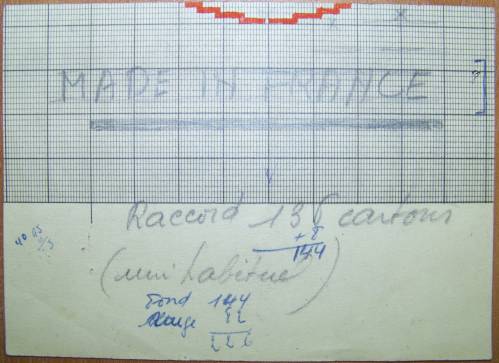 MADE IN FRANCE
Raccord 136 cartons
+ 8
144
(uni habituel)
Fond 144
Rouge 82
226